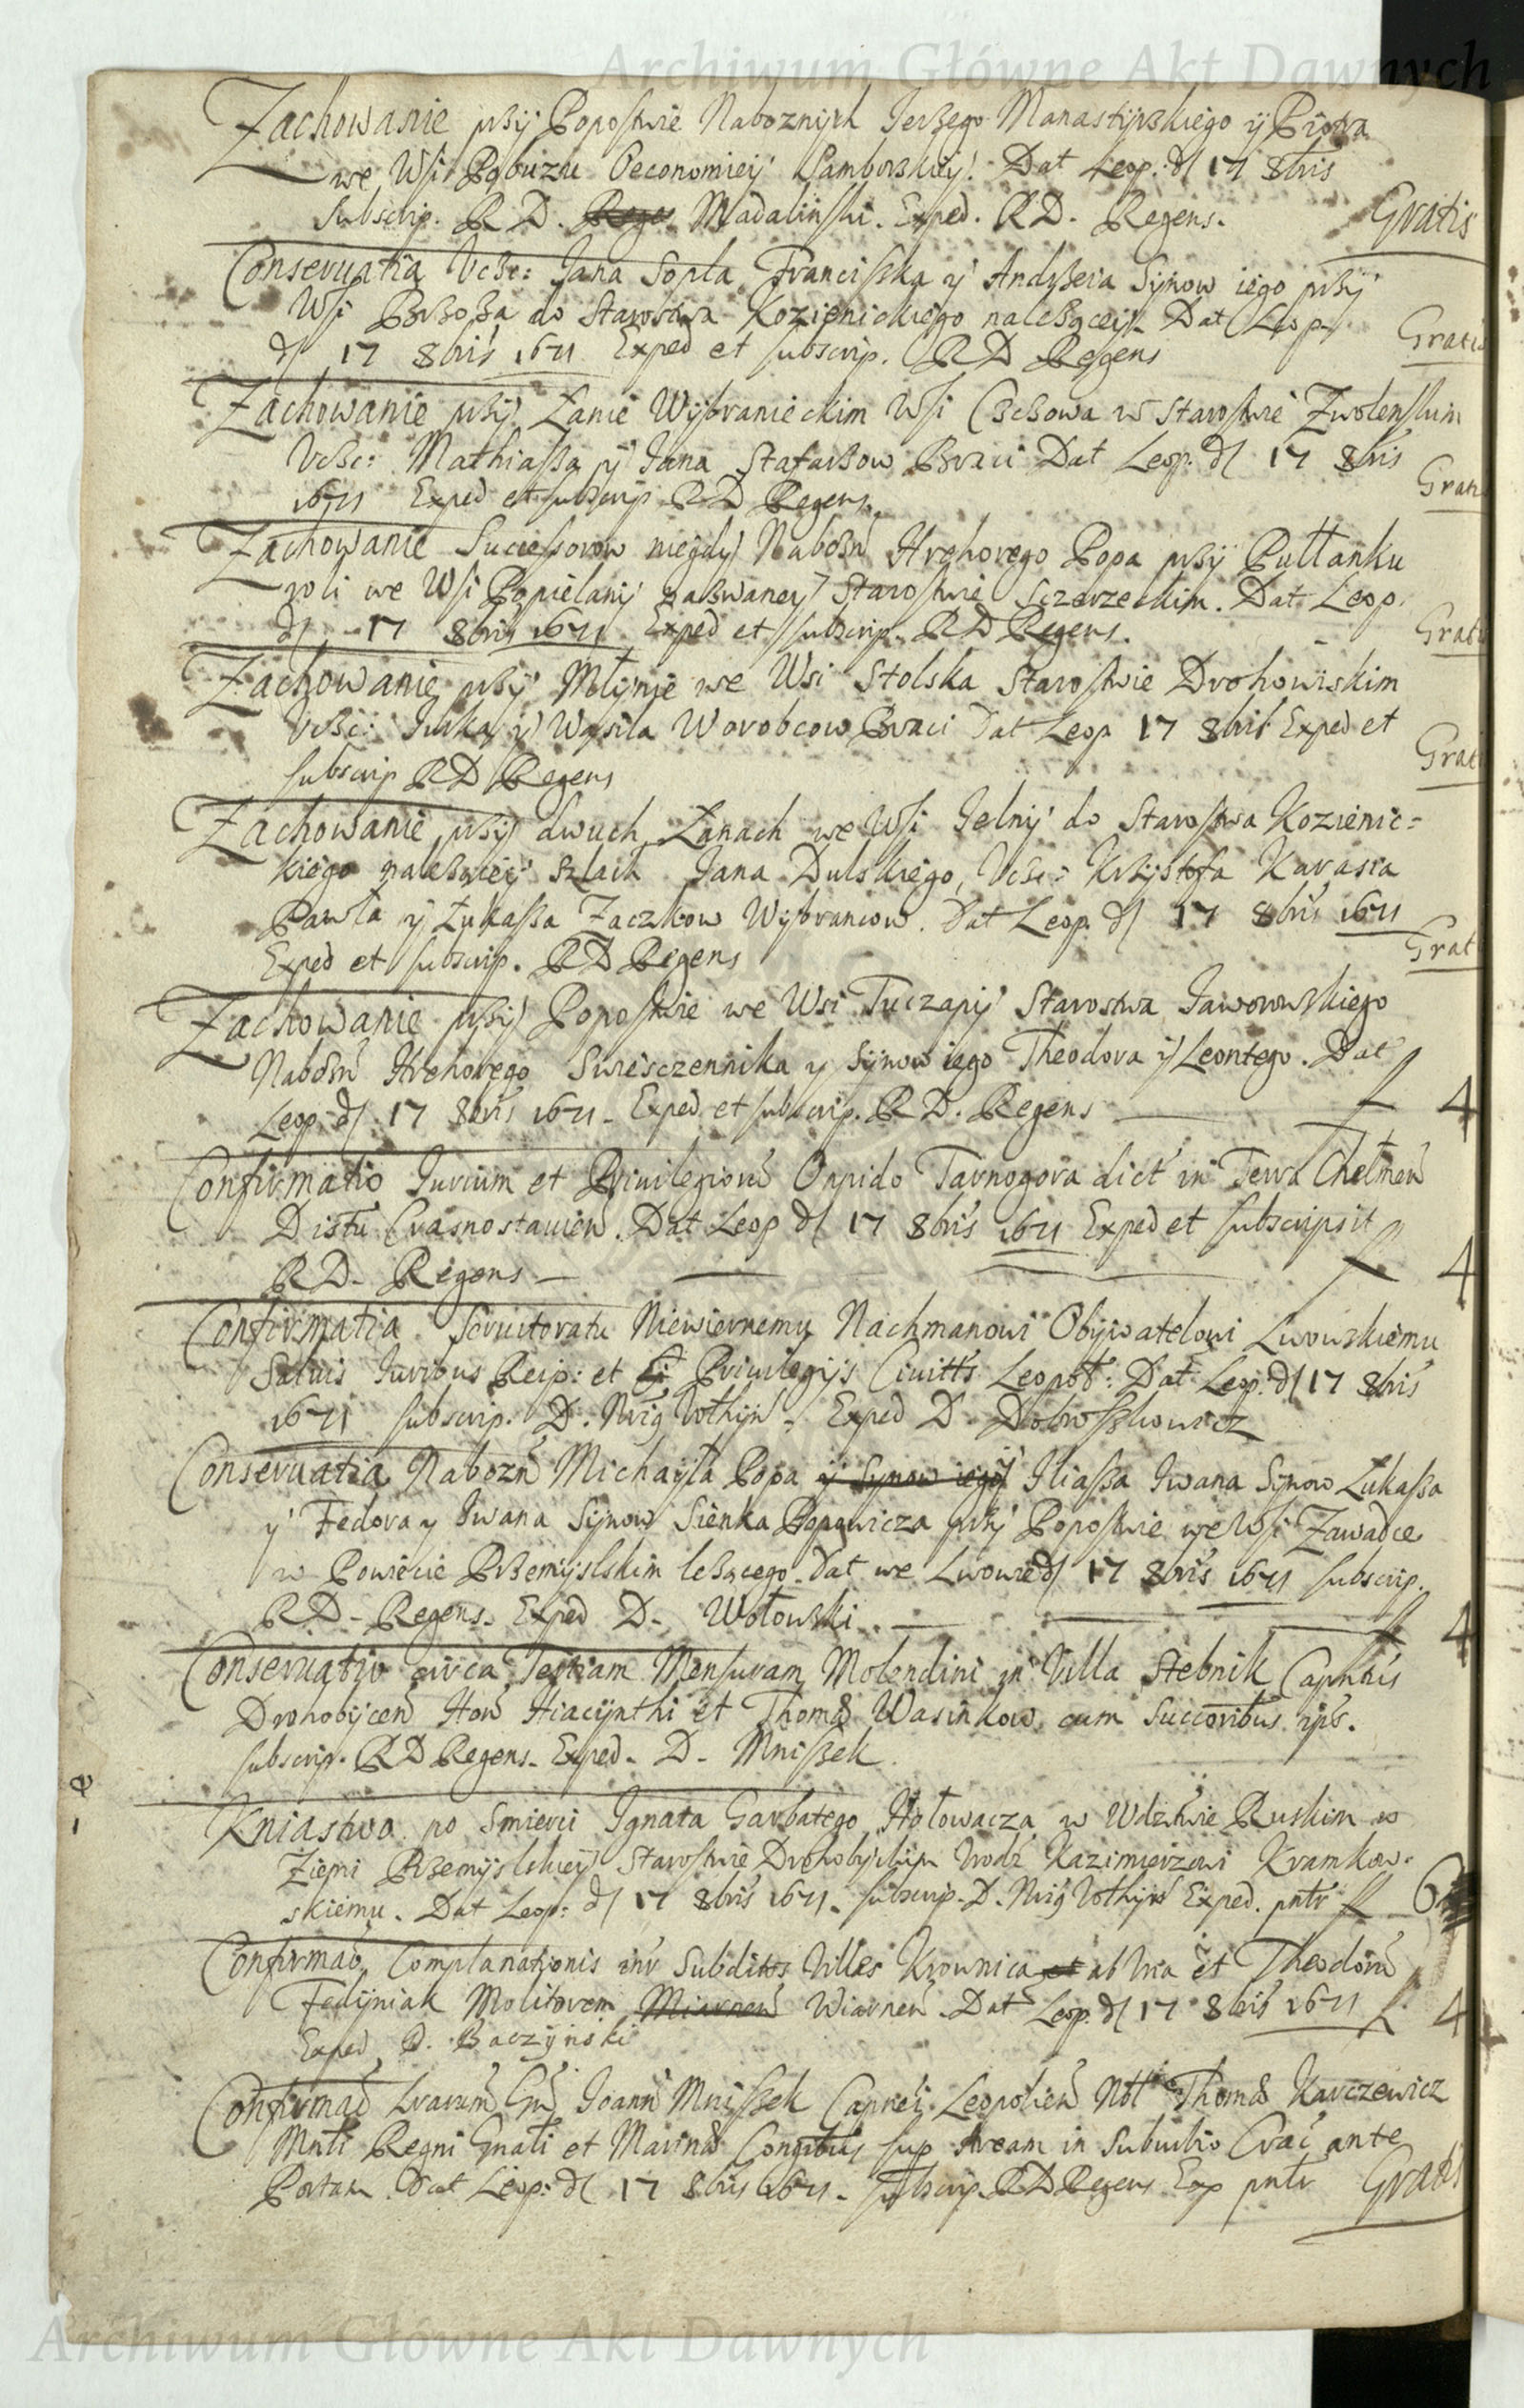 Archiwum Główne Akt Dawnych
Zachowanie przÿ Popostwie Naboznÿch Jerzego Manastÿrskiego ÿ Piotra
we Wsi Pobuzu Oeconomieÿ Samborskieÿ. Dat Leop. d 17 8bris
subscrip. R D. Rege Madalinski. Exped. RD. Regens. Gratis
Conseruatia Vczc: Jana Sopla Franciszka ÿ Andrzeia Sÿnow iego przÿ
Wsi Brzoza do Starostwa Kozienickiego naleząceÿ. Dat Leop
d 17 8bris 1671 Exped et subscrip. RD Regens Gratis
Zachowanie przÿ Łanie Wÿbranieckim Wsi Czczowa w Starostwie Zwolenskim
Vczc: Mathiasza ÿ Jana Stafarzow Braci Dat Leop. d 17 8bris
1671 Exped et subscrip RD Regens. Grati
Zachowanie Successorow niegdÿ Nabozn Hrehorego Popa przÿ Pułłanku
roli we Wsi Popielanÿ nazwaneÿ Starostwie Sczerzeckim. Dat Leop.
d 17 8bris 1671 Exped et subscrip. RD Regens. Grati
Zachowanie przÿ Młÿnie we Wsi Stolska Starostwie Drohowiskim
Vczc: Jurka ÿ Wasila Worobcow Braci Dat Leop 17 8bris Exped et
subscrip RD Regens Grati
Zachowanie przÿ dwuch Łanach we Wsi Jelnÿ do Starostwa Kozienic=
kiego nalezącieÿ Szlach Jana Dulskiego, Vczc: Krzÿsztofa Karasia
Pawła ÿ Łukasza Zaczkow Wÿbrancow. Dat Leop. d 17 8bris 1671
Exped et subscrip. RD Regens Grat
Zachowanie przÿ Popostwie we Wsi Tuczapÿ Starostwa Jaworowskiego
Nabozn Hrehorego Swiesczennika ÿ Sÿnow iego Theodora ÿ Leontego. Dat
Leop. d 17 8bris 1671 - Exped et subscrip. RD. Regens f 4
Confirmatio Jurium et Priuilegiorū Oppido Tarnogora dict in Terra Chełmeń
Distu Crasnostauień. Dat Leop d 17 8bris 1671 Exped et subscripsit
RD. Regens f 4
Confirmatia Seruitoratu Niewiernemu Nachmanowi Obÿwatelowi Lwowskiemu
Saluis Juribus Reip: et Priuilegÿs Ciuitts Leopol: Dat Leop. d 17 8bris
1671 subscrip. D. Exped D. Dobroszkowicz
Conseruatia Nabozn Michaÿła Popa ÿ Sÿnow iego Iliasza Iwana Sÿnow Łukasza
ÿ Fedora ÿ Iwana Sÿnow Sienka Popowicza przÿ Popostwie we Wsi Zawadce
w Powiecie Przemÿslskim lezącego. Dat we Lwowie d 17 8bris 1671 subscrip.
RD. Regens. Exped D. Wołowski f 4
Conseruatio circa Tertiam Mensuram Molendini in Villa Stebnik Capntus
Drohobÿceń Hon Hiacÿnthi et Thomæ Wasinkow cum Succoribus ips.
subscrip. RD Regens. Exped. D. Mniszek.
Kniastwo po Smierci Ignata Garbatego Hołowacza w Wdztwie Ruskim w
Ziemi Przemÿslskieÿ Starostwie Drohobÿckim Vrodź Kazimierzowi Kramkow-
skiemu. Dat Leop: d 17 8bris 1671. subscrip. D. Exped. pntr f 6
Confirmao Complanationis intr Subditos Villæ Krownica et ab Vna et Theodorū
Fedÿniak Molitorem Miarneń Wiarneń. Dat Leop. d 17 8bris 1671 f 4
Exped D. Baczÿnski
Confirmao Lrarum Joann Mniszek Capnei Leopolień Nbl Thomæ Karczewicz
Mntł Regni Gnałi et Marinæ Congibus sup Aream in Suburbio Crac ante
Portam Dat Leop: d 17 8bris 1671. subscrip. RD Regens Exp pntr Gratis
Archiwum Główne Akt Dawnych